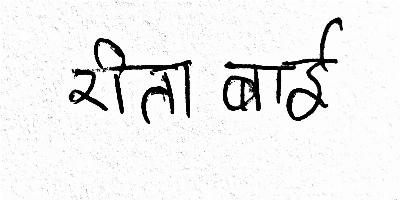 रीता बाई